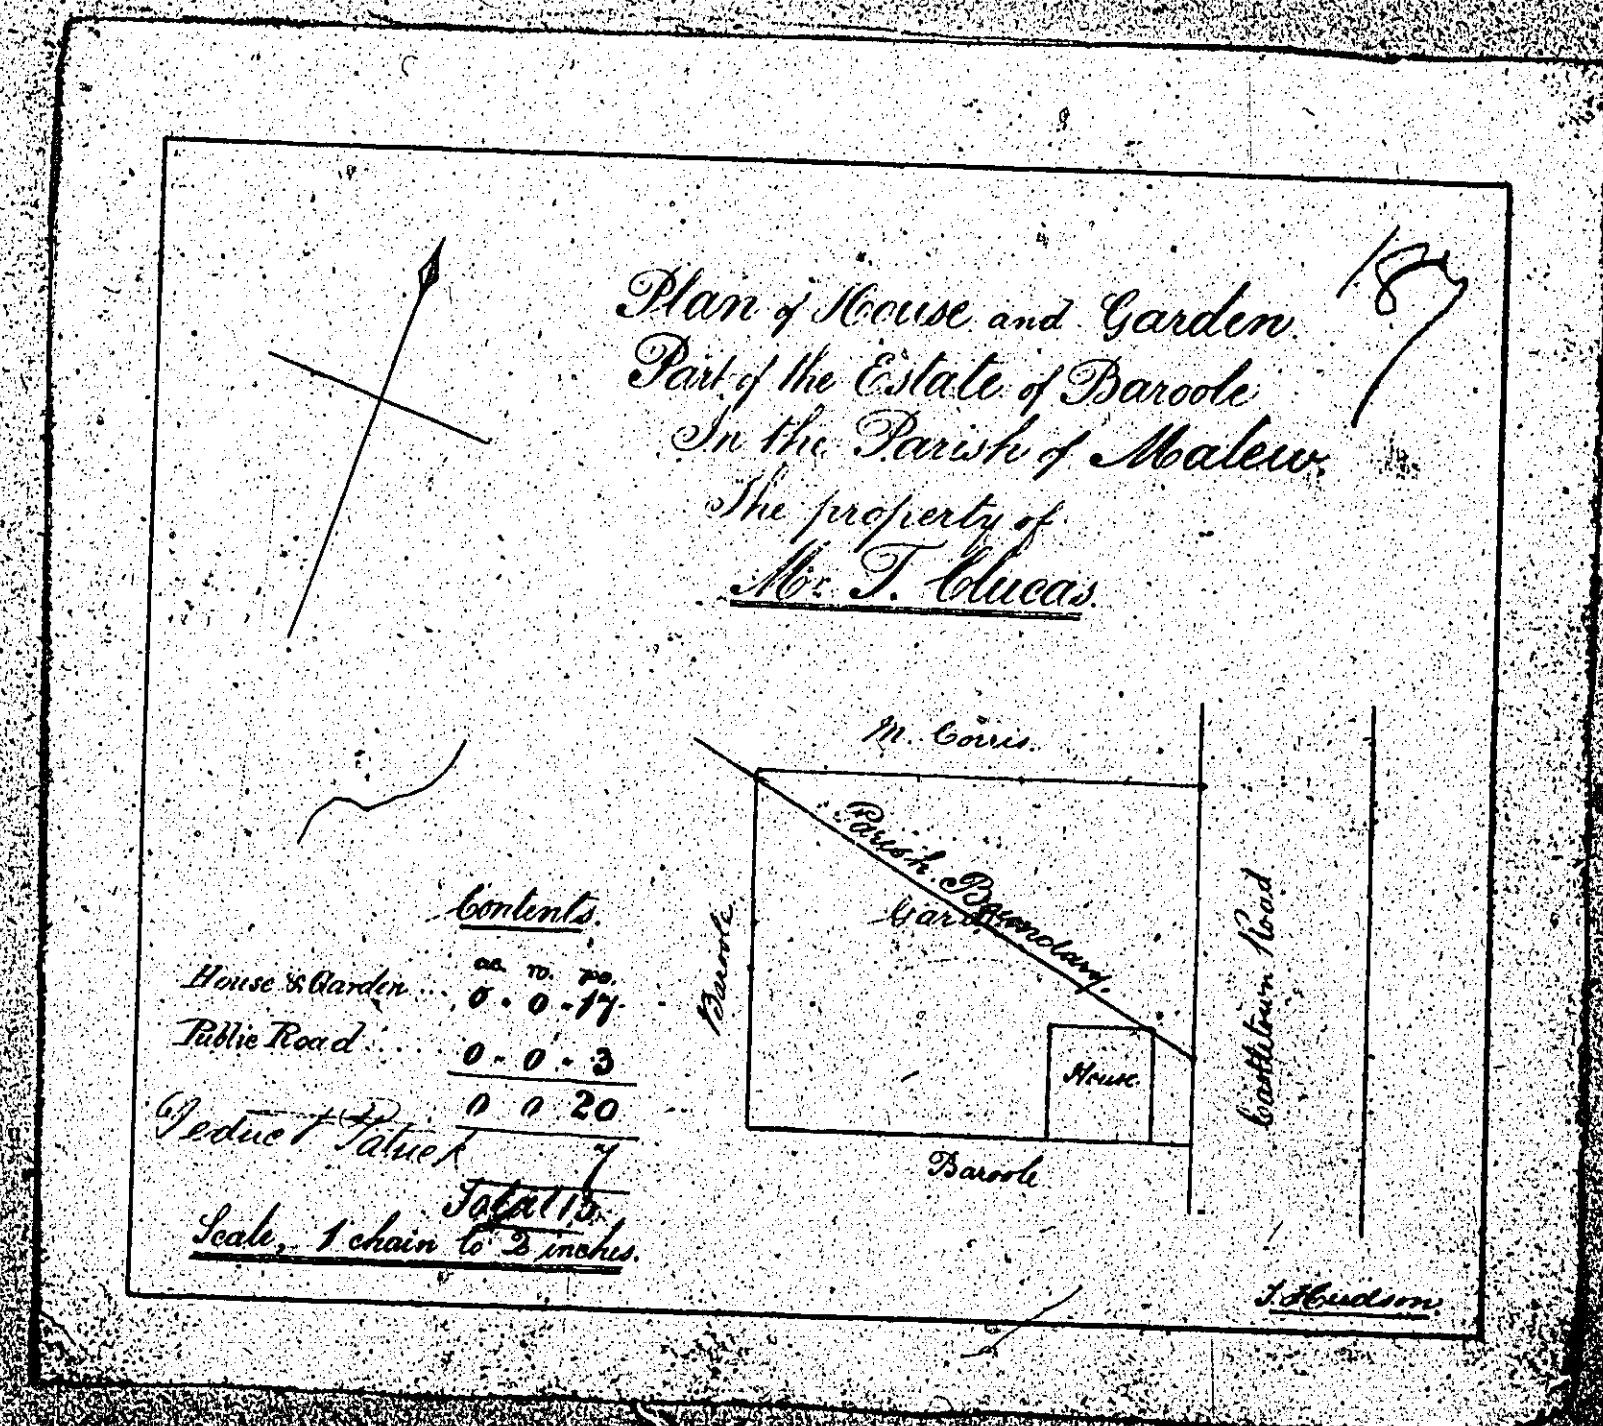 187
Plan of House and Garden
Part of the Estate of Baroole
In the Parish of Malew.
The property of
Mr. T. Clucas.
M. Corris.
Parish Boundary.
Garden
Baroole
Castletown Road
House
Baroole
Contents.
ac. ro. po.
House & Garden ... 0 . 0 . 17
Public Road ..... 0 . 0 . 3
0 0 20
Deduct 7
Total 13
Scale, 1 chain to 2 inches.
J. Hudson